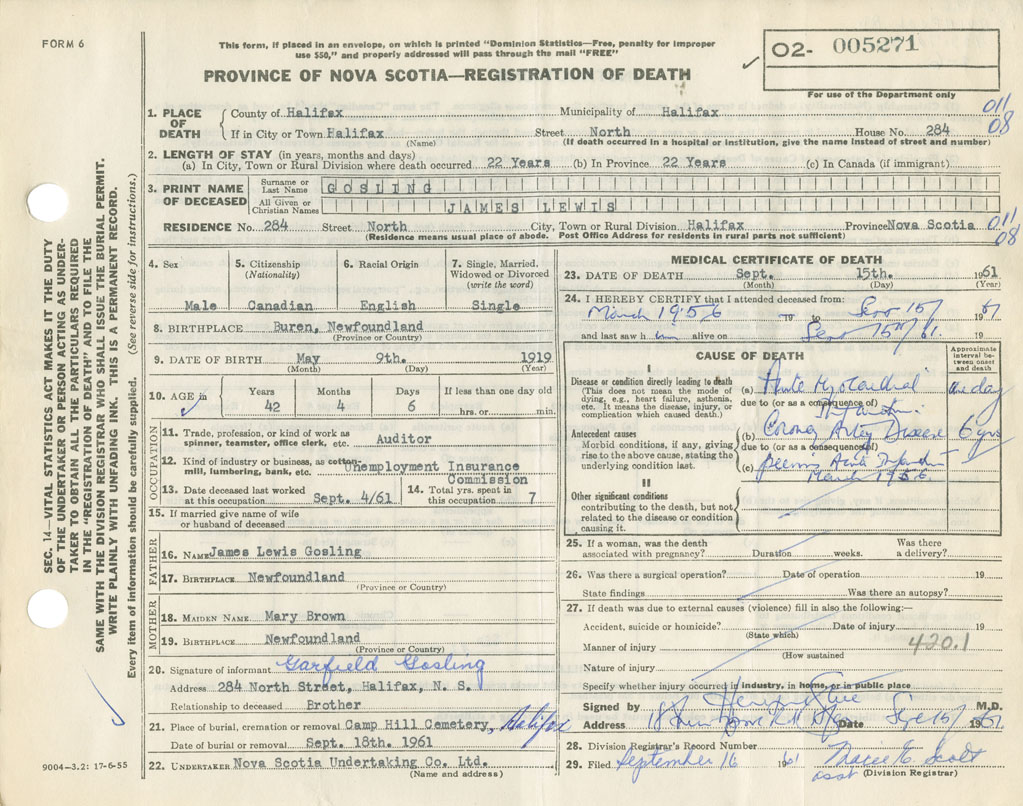 FORM 6
This form, if placed in an envelope, on which is printed "Dominion Statistics—Free, penalty for improper
use $50," and properly addressed will pass through the mail "FREE"
PROVINCE OF NOVA SCOTIA—REGISTRATION OF DEATH
02- 005271
For use of the Department only
011
08
SEC. 14—VITAL STATISTICS ACT MAKES IT THE DUTY
OF THE UNDERTAKER OR PERSON ACTING AS UNDER-
TAKER TO OBTAIN ALL THE PARTICULARS REQUIRED
IN THE "REGISTRATION OF DEATH" AND TO FILE THE
SAME WITH THE DIVISION REGISTRAR WHO SHALL ISSUE THE BURIAL PERMIT.
WRITE PLAINLY WITH UNFADING INK. THIS IS A PERMANENT RECORD.
Every item of information should be carefully supplied. (See reverse side for instructions.)
1. PLACE OF DEATH
County of Halifax Municipality of Halifax
If in City or Town Halifax Street North House No. 284
(Name) (If death occurred in a hospital or institution, give the name instead of street and number)
2. LENGTH OF STAY (in years, months and days)
(a) In City, Town or Rural Division where death occurred 22 Years (b) In Province 22 Years (c) In Canada (if immigrant)
3. PRINT NAME OF DECEASED
Surname or Last Name GOSLING
All Given or Christian Names JAMES LEWIS
RESIDENCE No. 284 Street North City, Town or Rural Division Halifax Province Nova Scotia
011
08
(Residence means usual place of abode. Post Office Address for residents in rural parts not sufficient)
4. Sex
Male
5. Citizenship (Nationality)
Canadian
6. Racial Origin
English
7. Single, Married, Widowed or Divorced (write the word)
Single
8. BIRTHPLACE Buren, Newfoundland
(Province or Country)
9. DATE OF BIRTH May 9th. 1919
(Month) (Day) (Year)
10. AGE in Years Months Days If less than one day old
42 4 6 hrs. or min.
OCCUPATION
11. Trade, profession, or kind of work as
spinner, teamster, office clerk, etc. Auditor
12. Kind of industry or business, as cotton-
mill, lumbering, bank, etc. Unemployment Insurance
Commission
13. Date deceased last worked
at this occupation Sept. 4/61
14. Total yrs. spent in
this occupation 7
15. If married give name of wife
or husband of deceased
FATHER
16. NAME James Lewis Gosling
17. BIRTHPLACE Newfoundland
(Province or Country)
MOTHER
18. MAIDEN NAME Mary Brown
19. BIRTHPLACE Newfoundland
(Province or Country)
20. Signature of informant Garfield Gosling
Address 284 North Street, Halifax, N. S.
Relationship to deceased Brother
21. Place of burial, cremation or removal Camp Hill Cemetery, Halifax
Date of burial or removal Sept. 18th. 1961
22. UNDERTAKER Nova Scotia Undertaking Co. Ltd.
(Name and address)
9004—3.2: 17-6-55
MEDICAL CERTIFICATE OF DEATH
23. DATE OF DEATH Sept. 15th. 1961
(Month) (Day) (Year)
24. I HEREBY CERTIFY that I attended deceased from:
March 1956 to 15 1961
and last saw him alive on 15th 61.
CAUSE OF DEATH
Approximate interval between onset and death
I
Disease or condition directly leading to death
(This does not mean the mode of
dying, e.g., heart failure, asthenia,
etc. It means the disease, injury, or
complication which caused death.)
(a) Acute Myocardial one day
due to (or as a consequence of)
Infarction
Antecedent causes
Morbid conditions, if any, giving
rise to the above cause, stating the
underlying condition last.
(b) Coronary Artery Disease 6 yrs
due to (or as a consequence of)
(c) Infarction
March 1956.
II
Other significant conditions
contributing to the death, but not
related to the disease or condition
causing it.
25. If a woman, was the death
associated with pregnancy? Duration weeks. Was there
a delivery?
26. Was there a surgical operation? Date of operation 19
State findings Was there an autopsy?
27. If death was due to external causes (violence) fill in also the following:—
Accident, suicide or homicide? Date of injury 19
(State which)
Manner of injury 420.1
(How sustained
Nature of injury
Specify whether injury occurred in industry, in home, or in public place
Signed by M.D.
Address Date 15 1961
28. Division Registrar's Record Number
29. Filed September 16 1961 Scott
asst (Division Registrar)